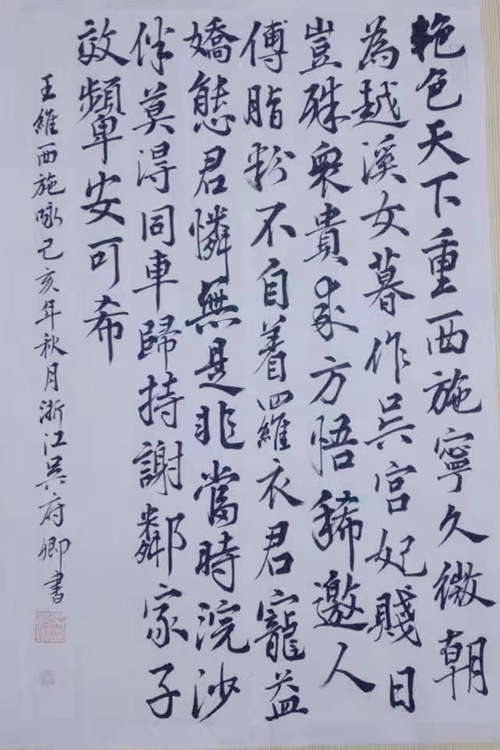 艳色天下重西施寧久微朝
為越溪女暮作吳宮妃賤日
豈殊衆貴来方悟稀邀人
傅脂粉不自着羅衣君寵益
嬌態君憐無是非當時浣沙
伴莫得同車歸持謝鄰家子
效顰安可希
王維西施咏己亥年秋月浙江吳府卿書